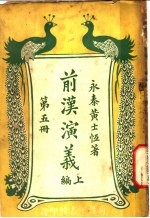 永泰黃士恆著
前漢演義上編
第五冊